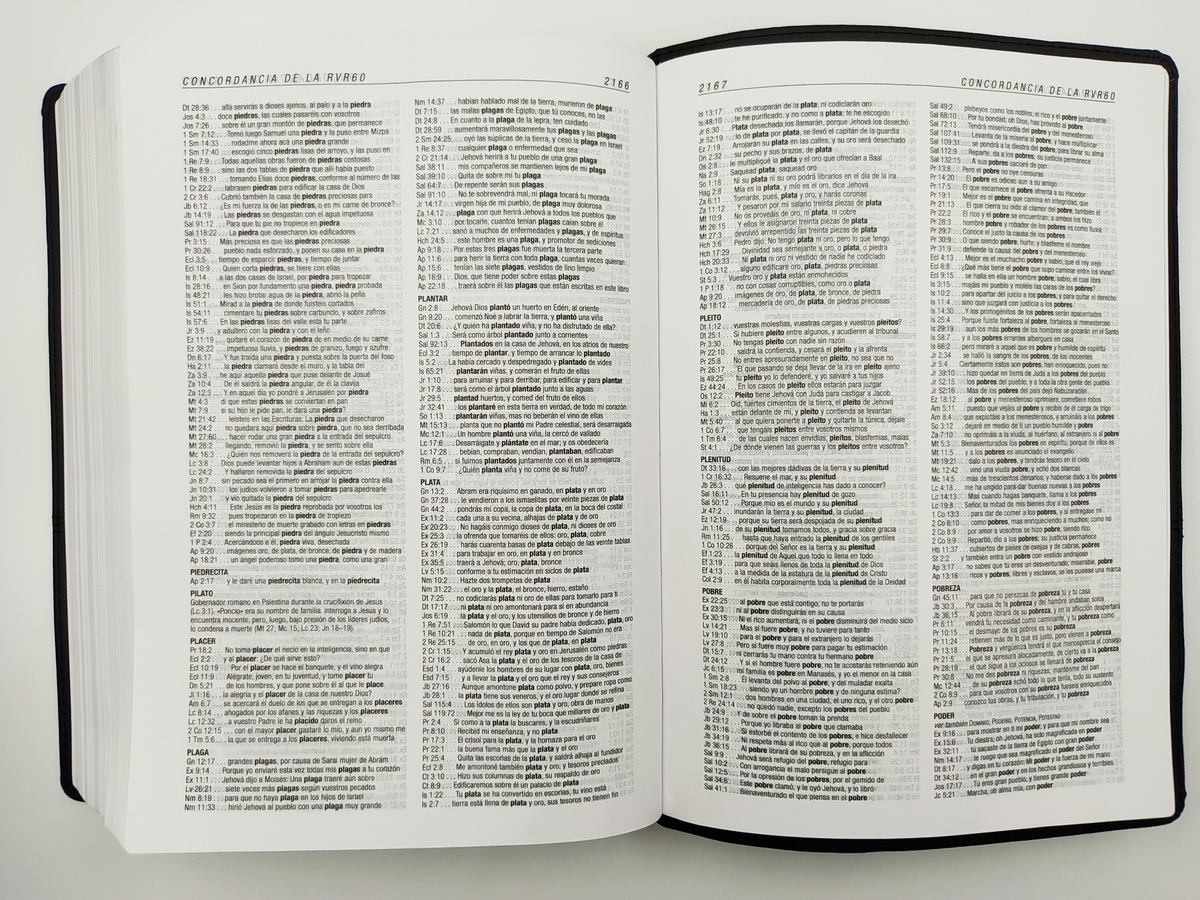 CONCORDANCIA DE LA RVR60
2166
Dt 28:36 . . . allá servirás a dioses ajenos, al palo y a la piedra
Jos 4:3 . . . doce piedras, las cuales pasaréis con vosotros
Jos 7:26 . . . sobre él un gran montón de piedras, que permanece
1 Sm 7:12 . . . Tomó luego Samuel una piedra y la puso entre Mizpa
1 Sm 14:33 . . . rodadme ahora acá una piedra grande
1 Sm 17:40 . . . escogió cinco piedras lisas del arroyo, y las puso en
1 Re 7:9 . . . Todas aquellas obras fueron de piedras costosas
1 Re 8:9 . . . sino las dos tablas de piedra que allí había puesto
1 Re 18:31 . . . tomando Elías doce piedras, conforme al número de las
1 Cr 22:2 . . . labrasen piedras para edificar la casa de Dios
2 Cr 3:6 . . . Cubrió también la casa de piedras preciosas para
Jb 6:12 . . . ¿Es mi fuerza la de las piedras, o es mi carne de bronce?
Jb 14:19 . . . Las piedras se desgastan con el agua impetuosa
Sal 91:12 . . . Para que tu pie no tropiece en piedra
Sal 118:22 . . . La piedra que desecharon los edificadores
Pr 3:15 . . . Más preciosa es que las piedras preciosas
Pr 30:26 . . . pueblo nada esforzado, y ponen su casa en la piedra
Ecl 3:5 . . . tiempo de esparcir piedras, y tiempo de juntar
Ecl 10:9 . . . Quien corta piedras, se hiere con ellas
Is 8:14 . . . a las dos casas de Israel, por piedra para tropezar
Is 28:16 . . . en Sion por fundamento una piedra, piedra probada
Is 48:21 . . . les hizo brotar agua de la piedra; abrió la peña
Is 51:1 . . . Mirad a la piedra de donde fuisteis cortados
Is 54:11 . . . cimentaré tus piedras sobre carbunclo, y sobre zafiros
Is 57:6 . . . En las piedras lisas del valle está tu parte
Jr 3:9 . . . y adulteró con la piedra y con el leño
Ez 11:19 . . . quitaré el corazón de piedra de en medio de su carne
Ez 38:22 . . . impetuosa lluvia, y piedras de granizo, fuego y azufre
Dn 6:17 . . . Y fue traída una piedra y puesta sobre la puerta del foso
Ha 2:11 . . . la piedra clamará desde el muro, y la tabla del
Za 3:9 . . . he aquí aquella piedra que puse delante de Josué
Za 10:4 . . . De él saldrá la piedra angular, de él la clavija
Za 12:3 . . . Y en aquel día yo pondré a Jerusalén por piedra
Mt 4:3 . . . di que estas piedras se conviertan en pan
Mt 7:9 . . . si su hijo le pide pan, le dará una piedra?
Mt 21:42 . . . leísteis en las Escrituras: La piedra que desecharon
Mt 24:2 . . . no quedará aquí piedra sobre piedra, que no sea derribada
Mt 27:60 . . . hacer rodar una gran piedra a la entrada del sepulcro
Mt 28:2 . . . llegando, removió la piedra, y se sentó sobre ella
Mc 16:3 . . . ¿Quién nos removerá la piedra de la entrada del sepulcro?
Lc 3:8 . . . Dios puede levantar hijos a Abraham aun de estas piedras
Lc 24:2 . . . Y hallaron removida la piedra del sepulcro
Jn 8:7 . . . sin pecado sea el primero en arrojar la piedra contra ella
Jn 10:31 . . . los judíos volvieron a tomar piedras para apedrearle
Jn 20:1 . . . y vio quitada la piedra del sepulcro
Hch 4:11 . . . Este Jesús es la piedra reprobada por vosotros los
Rm 9:32 . . . pues tropezaron en la piedra de tropiezo
2 Co 3:7 . . . el ministerio de muerte grabado con letras en piedras
Ef 2:20 . . . siendo la principal piedra del ángulo Jesucristo mismo
1 P 2:4 . . . Acercándoos a él, piedra viva, desechada
Ap 9:20 . . . imágenes de oro, de plata, de bronce, de piedra y de madera
Ap 18:21 . . . un ángel poderoso tomó una piedra, como una gran
PIEDRECITA
Ap 2:17 . . . y le daré una piedrecita blanca, y en la piedrecita
PILATO
Gobernador romano en Palestina durante la crucifixión de Jesús
(Lc 3:1). «Poncio» era su nombre de familia. Interroga a Jesús y lo
encuentra inocente, pero, luego, bajo presión de los líderes judíos,
lo condena a muerte (Mt 27; Mc 15; Lc 23; Jn 18–19).
PLACER
Pr 18:2 . . . No toma placer el necio en la inteligencia, sino en que
Ecl 2:2 . . . y al placer: ¿De qué sirve esto?
Ecl 10:19 . . . Por el placer se hace el banquete, y el vino alegra
Ecl 11:9 . . . Alégrate, joven, en tu juventud, y tome placer tu
Dn 5:21 . . . de los hombres, y que pone sobre él al que le place
Jl 1:16 . . . la alegría y el placer de la casa de nuestro Dios?
Am 6:7 . . . se acercará el duelo de los que se entregan a los placeres
Lc 8:14 . . . ahogados por los afanes y las riquezas y los placeres
Lc 12:32 . . . a vuestro Padre le ha placido daros el reino
2 Co 12:15 . . . con el mayor placer gastaré lo mío, y aun yo mismo me
1 Tm 5:6 . . . la que se entrega a los placeres, viviendo está muerta
PLAGA
Gn 12:17 . . . grandes plagas, por causa de Sarai mujer de Abram
Ex 9:14 . . . Porque yo enviaré esta vez todas mis plagas a tu corazón
Ex 11:1 . . . Jehová dijo a Moisés: Una plaga traeré aún sobre
Lv 26:21 . . . siete veces más plagas según vuestros pecados
Nm 8:19 . . . para que no haya plaga en los hijos de Israel
Nm 11:33 . . . hirió Jehová al pueblo con una plaga muy grande
Nm 14:37 . . . habían hablado mal de la tierra, murieron de plaga
Dt 7:15 . . . las malas plagas de Egipto, que tú conoces, no las
Dt 24:8 . . . En cuanto a la plaga de la lepra, ten cuidado
Dt 28:59 . . . aumentará maravillosamente tus plagas y las plagas
2 Sm 24:25 . . . oyó las súplicas de la tierra, y cesó la plaga en Israel
1 Re 8:37 . . . cualquier plaga o enfermedad que sea
2 Cr 21:14 . . . Jehová herirá a tu pueblo de una gran plaga
Sal 38:11 . . . mis compañeros se mantienen lejos de mi plaga
Sal 39:10 . . . Quita de sobre mí tu plaga
Sal 64:7 . . . De repente serán sus plagas
Sal 91:10 . . . No te sobrevendrá mal, ni plaga tocará tu morada
Jr 14:17 . . . virgen hija de mi pueblo, de plaga muy dolorosa
Za 14:12 . . . plaga con que herirá Jehová a todos los pueblos que
Mc 3:10 . . . por tocarle, cuantos tenían plagas caían sobre él
Lc 7:21 . . . sanó a muchos de enfermedades y plagas, y de espíritus
Hch 24:5 . . . este hombre es una plaga, y promotor de sediciones
Ap 9:18 . . . Por estas tres plagas fue muerta la tercera parte
Ap 11:6 . . . para herir la tierra con toda plaga, cuantas veces quieran
Ap 15:6 . . . tenían las siete plagas, vestidos de lino limpio
Ap 16:9 . . . Dios, que tiene poder sobre estas plagas
Ap 22:18 . . . traerá sobre él las plagas que están escritas en este libro
PLANTAR
Gn 2:8 . . . Jehová Dios plantó un huerto en Edén, al oriente
Gn 9:20 . . . comenzó Noé a labrar la tierra, y plantó una viña
Dt 20:6 . . . ¿Y quién ha plantado viña, y no ha disfrutado de ella?
Sal 1:3 . . . Será como árbol plantado junto a corrientes
Sal 92:13 . . . Plantados en la casa de Jehová, en los atrios de nuestro
Ecl 3:2 . . . tiempo de plantar, y tiempo de arrancar lo plantado
Is 5:2 . . . La había cercado y despedregado y plantado de vides
Is 65:21 . . . plantarán viñas, y comerán el fruto de ellas
Jr 1:10 . . . para arruinar y para derribar, para edificar y para plantar
Jr 17:8 . . . será como el árbol plantado junto a las aguas
Jr 29:5 . . . plantad huertos, y comed del fruto de ellos
Jr 32:41 . . . los plantaré en esta tierra en verdad, de todo mi corazón
So 1:13 . . . plantarán viñas, mas no beberán el vino de ellas
Mt 15:13 . . . planta que no plantó mi Padre celestial, será desarraigada
Mc 12:1 . . . Un hombre plantó una viña, la cercó de vallado
Lc 17:6 . . . Desarráigate y plántate en el mar; y os obedecería
Lc 17:28 . . . bebían, compraban, vendían, plantaban, edificaban
Rm 6:5 . . . si fuimos plantados juntamente con él en la semejanza
1 Co 9:7 . . . ¿Quién planta viña y no come de su fruto?
PLATA
Gn 13:2 . . . Abram era riquísimo en ganado, en plata y en oro
Gn 37:28 . . . le vendieron a los ismaelitas por veinte piezas de plata
Gn 44:2 . . . pondrás mi copa, la copa de plata, en la boca del costal
Ex 11:2 . . . cada una a su vecina, alhajas de plata y de oro
Ex 20:23 . . . No hagáis conmigo dioses de plata, ni dioses de oro
Ex 25:3 . . . la ofrenda que tomaréis de ellos: oro, plata, cobre
Ex 26:19 . . . harás cuarenta basas de plata debajo de las veinte tablas
Ex 31:4 . . . para trabajar en oro, en plata y en bronce
Ex 35:5 . . . traerá a Jehová; oro, plata, bronce
Lv 5:15 . . . conforme a tu estimación en siclos de plata
Nm 10:2 . . . Hazte dos trompetas de plata
Nm 31:22 . . . el oro y la plata, el bronce, hierro, estaño
Dt 7:25 . . . no codiciarás plata ni oro de ellas para tomarlo para ti
Dt 17:17 . . . ni plata ni oro amontonará para sí en abundancia
Jos 6:19 . . . la plata y el oro, y los utensilios de bronce y de hierro
1 Re 7:51 . . . Salomón lo que David su padre había dedicado, plata, oro
1 Re 10:21 . . . nada de plata, porque en tiempo de Salomón no era
2 Re 25:15 . . . de oro, en oro, y los que de plata, en plata
2 Cr 1:15 . . . Y acumuló el rey plata y oro en Jerusalén como piedras
2 Cr 16:2 . . . sacó Asa la plata y el oro de los tesoros de la casa de
Esd 1:4 . . . ayúdenle los hombres de su lugar con plata, oro, bienes
Esd 7:15 . . . y a llevar la plata y el oro que el rey y sus consejeros
Jb 27:16 . . . Aunque amontone plata como polvo, y prepare ropa como
Jb 28:1 . . . la plata tiene sus veneros, y el oro lugar donde se refina
Sal 115:4 . . . Los ídolos de ellos son plata y oro, obra de manos
Sal 119:72 . . . Mejor me es la ley de tu boca que millares de oro y plata
Pr 2:4 . . . Si como a la plata la buscares, y la escudriñares
Pr 8:10 . . . Recibid mi enseñanza, y no plata
Pr 17:3 . . . El crisol para la plata, y la hornaza para el oro
Pr 22:1 . . . la buena fama más que la plata y el oro
Pr 25:4 . . . Quita las escorias de la plata, y saldrá alhaja al fundidor
Ecl 2:8 . . . Me amontoné también plata y oro, y tesoros preciados
Ct 3:10 . . . Hizo sus columnas de plata, su respaldo de oro
Ct 8:9 . . . Edificaremos sobre él un palacio de plata
Is 1:22 . . . Tu plata se ha convertido en escorias, tu vino está
Is 2:7 . . . tierra está llena de plata y oro, sus tesoros no tienen fin
2167
CONCORDANCIA DE LA RVR60
Is 13:17 . . . no se ocuparán de la plata, ni codiciarán oro
Is 48:10 . . . te he purificado, y no como a plata; te he escogido
Jr 6:30 . . . Plata desechada los llamarán, porque Jehová los desechó
Jr 52:19 . . . lo de plata por plata, se llevó el capitán de la guardia
Ez 7:19 . . . Arrojarán su plata en las calles, y su oro será desechado
Dn 2:32 . . . su pecho y sus brazos, de plata
Os 2:8 . . . le multipliqué la plata y el oro que ofrecían a Baal
Na 2:9 . . . Saquead plata, saquead oro
So 1:18 . . . Ni su plata ni su oro podrá librarlos en el día de la ira
Hag 2:8 . . . Mía es la plata, y mío es el oro, dice Jehová
Za 6:11 . . . Tomarás, pues, plata y oro, y harás coronas
Za 11:12 . . . Y pesaron por mi salario treinta piezas de plata
Mt 10:9 . . . No os proveáis de oro, ni plata, ni cobre
Mt 26:15 . . . Y ellos le asignaron treinta piezas de plata
Mt 27:3 . . . devolvió arrepentido las treinta piezas de plata
Hch 3:6 . . . Pedro dijo: No tengo plata ni oro, pero lo que tengo
Hch 17:29 . . . Divinidad sea semejante a oro, o plata, o piedra
Hch 20:33 . . . Ni plata ni oro ni vestido de nadie he codiciado
1 Co 3:12 . . . alguno edificare oro, plata, piedras preciosas
St 5:3 . . . Vuestro oro y plata están enmohecidos
1 P 1:18 . . . no con cosas corruptibles, como oro o plata
Ap 9:20 . . . imágenes de oro, de plata, de bronce, de piedra
Ap 18:12 . . . mercadería de oro, de plata, de piedras preciosas
PLEITO
Dt 1:12 . . . vuestras molestias, vuestras cargas y vuestros pleitos?
Dt 25:1 . . . Si hubiere pleito entre algunos, y acudieren al tribunal
Pr 3:30 . . . No tengas pleito con nadie sin razón
Pr 22:10 . . . saldrá la contienda, y cesará el pleito y la afrenta
Pr 25:8 . . . No entres apresuradamente en pleito, no sea que no
Pr 26:17 . . . El que pasando se deja llevar de la ira en pleito ajeno
Is 49:25 . . . tu pleito yo lo defenderé, y yo salvaré a tus hijos
Ez 44:24 . . . En los casos de pleito ellos estarán para juzgar
Os 12:2 . . . Pleito tiene Jehová con Judá para castigar a Jacob
Mi 6:2 . . . Oíd, fuertes cimientos de la tierra, el pleito de Jehová
Ha 1:3 . . . están delante de mí, y pleito y contienda se levantan
Mt 5:40 . . . al que quiera ponerte a pleito y quitarte la túnica, déjale
1 Co 6:7 . . . que tengáis pleitos entre vosotros mismos
1 Tm 6:4 . . . de las cuales nacen envidias, pleitos, blasfemias, malas
St 4:1 . . . ¿De dónde vienen las guerras y los pleitos entre vosotros?
PLENITUD
Dt 33:16 . . . con las mejores dádivas de la tierra y su plenitud
1 Cr 16:32 . . . Resuene el mar, y su plenitud
Jb 26:3 . . . qué plenitud de inteligencia has dado a conocer?
Sal 16:11 . . . En tu presencia hay plenitud de gozo
Sal 50:12 . . . Porque mío es el mundo y su plenitud
Jr 47:2 . . . inundarán la tierra y su plenitud, la ciudad
Ez 12:19 . . . porque su tierra será despojada de su plenitud
Jn 1:16 . . . de su plenitud tomamos todos, y gracia sobre gracia
Rm 11:25 . . . hasta que haya entrado la plenitud de los gentiles
1 Co 10:26 . . . porque del Señor es la tierra y su plenitud
Ef 1:23 . . . la plenitud de Aquel que todo lo llena en todo
Ef 3:19 . . . para que seáis llenos de toda la plenitud de Dios
Ef 4:13 . . . a la medida de la estatura de la plenitud de Cristo
Col 2:9 . . . en él habita corporalmente toda la plenitud de la Deidad
POBRE
Ex 22:25 . . . al pobre que está contigo, no te portarás
Ex 23:3 . . . ni al pobre distinguirás en su causa
Ex 30:15 . . . Ni el rico aumentará, ni el pobre disminuirá del medio siclo
Lv 14:21 . . . Mas si fuere pobre, y no tuviere para tanto
Lv 19:10 . . . para el pobre y para el extranjero lo dejarás
Lv 27:8 . . . Pero si fuere muy pobre para pagar tu estimación
Dt 15:7 . . . ni cerrarás tu mano contra tu hermano pobre
Dt 24:12 . . . Y si el hombre fuere pobre, no te acostarás reteniendo aún
Jc 6:15 . . . mi familia es pobre en Manasés, y yo el menor en la casa
1 Sm 2:8 . . . Él levanta del polvo al pobre, y del muladar exalta
1 Sm 18:23 . . . siendo yo un hombre pobre y de ninguna estima?
2 Sm 12:1 . . . dos hombres en una ciudad, el uno rico, y el otro pobre
2 Re 24:14 . . . no quedó nadie, excepto los pobres del pueblo
Jb 24:9 . . . Y de sobre el pobre toman la prenda
Jb 29:12 . . . Porque yo libraba al pobre que clamaba
Jb 31:16 . . . Si estorbé el contento de los pobres, e hice desfallecer
Jb 34:19 . . . Ni respeta más al rico que al pobre, porque todos
Jb 36:15 . . . Al pobre librará de su pobreza, y en la aflicción
Sal 9:9 . . . Jehová será refugio del pobre, refugio para
Sal 10:2 . . . Con arrogancia el malo persigue al pobre
Sal 12:5 . . . Por la opresión de los pobres, por el gemido de
Sal 34:6 . . . Este pobre clamó, y le oyó Jehová, y lo libró
Sal 41:1 . . . Bienaventurado el que piensa en el pobre
Sal 49:2 . . . plebeyos como los nobles, el rico y el pobre juntamente
Sal 68:10 . . . Por tu bondad, oh Dios, has provisto al pobre
Sal 72:13 . . . Tendrá misericordia del pobre y del menesteroso
Sal 107:41 . . . Levanta de la miseria al pobre, y hace multiplicar
Sal 109:31 . . . se pondrá a la diestra del pobre, para librar su alma
Sal 112:9 . . . Reparte, da a los pobres; su justicia permanece
Sal 132:15 . . . A sus pobres saciaré de pan
Pr 13:8 . . . Pero el pobre no oye censuras
Pr 14:20 . . . El pobre es odioso aun a su amigo
Pr 17:5 . . . El que escarnece al pobre afrenta a su Hacedor
Pr 19:1 . . . Mejor es el pobre que camina en integridad, que
Pr 21:13 . . . El que cierra su oído al clamor del pobre, también él
Pr 22:2 . . . El rico y el pobre se encuentran; a ambos los hizo
Pr 28:3 . . . hombre pobre y robador de los pobres es como lluvia
Pr 29:7 . . . Conoce el justo la causa de los pobres
Pr 30:9 . . . O que siendo pobre, hurte, y blasfeme el nombre
Pr 31:9 . . . defiende la causa del pobre y del menesteroso
Ecl 4:13 . . . Mejor es el muchacho pobre y sabio, que el rey viejo
Ecl 6:8 . . . ¿Qué más tiene el pobre que supo caminar entre los vivos?
Ecl 9:15 . . . se halla en ella un hombre pobre, sabio, el cual libra
Is 3:15 . . . majáis mi pueblo y moléis las caras de los pobres?
Is 10:2 . . . para apartar del juicio a los pobres, y para quitar el derecho
Is 11:4 . . . sino que juzgará con justicia a los pobres
Is 14:30 . . . Y los primogénitos de los pobres serán apacentados
Is 25:4 . . . Porque fuiste fortaleza al pobre, fortaleza al menesteroso
Is 29:19 . . . aun los más pobres de los hombres se gozarán en el Santo
Is 58:7 . . . y a los pobres errantes albergues en casa
Is 66:2 . . . pero miraré a aquel que es pobre y humilde de espíritu
Jr 2:34 . . . se halló la sangre de los pobres, de los inocentes
Jr 5:4 . . . Ciertamente éstos son pobres, han enloquecido, pues no
Jr 39:10 . . . hizo quedar en tierra de Judá a los pobres del pueblo
Jr 52:15 . . . los pobres del pueblo, y a toda la otra gente del pueblo
Jr 52:16 . . . Mas de los pobres del país dejó Nabuzaradán
Ez 18:12 . . . al pobre y menesteroso oprimiere, cometiere robos
Am 5:11 . . . puesto que vejáis al pobre y recibís de él carga de trigo
Am 8:4 . . . que explotáis a los menesterosos, y arruináis a los pobres
So 3:12 . . . dejaré en medio de ti un pueblo humilde y pobre
Za 7:10 . . . no oprimáis a la viuda, al huérfano, al extranjero ni al pobre
Mt 5:3 . . . Bienaventurados los pobres en espíritu, porque de ellos es
Mt 11:5 . . . y a los pobres es anunciado el evangelio
Mt 19:21 . . . dalo a los pobres, y tendrás tesoro en el cielo
Mc 12:42 . . . vino una viuda pobre, y echó dos blancas
Mc 14:5 . . . más de trescientos denarios, y haberse dado a los pobres
Lc 4:18 . . . me ha ungido para dar buenas nuevas a los pobres
Lc 14:13 . . . Mas cuando hagas banquete, llama a los pobres
Lc 19:8 . . . Señor, la mitad de mis bienes doy a los pobres
1 Co 13:3 . . . para dar de comer a los pobres, y si entregase mi
2 Co 6:10 . . . como pobres, mas enriqueciendo a muchos; como no
2 Co 8:9 . . . por amor a vosotros se hizo pobre, siendo rico
2 Co 9:9 . . . Repartió, dio a los pobres; su justicia permanece
Hb 11:37 . . . cubiertos de pieles de ovejas y de cabras, pobres
St 2:2 . . . y también entra un pobre con vestido andrajoso
Ap 3:17 . . . no sabes que tú eres un desventurado, miserable, pobre
Ap 13:16 . . . ricos y pobres, libres y esclavos, se les pusiese una marca
POBREZA
Gn 45:11 . . . para que no perezcas de pobreza tú y tu casa
Jb 30:3 . . . Por causa de la pobreza y del hambre andaban solos
Jb 36:15 . . . Al pobre librará de su pobreza, y en la aflicción despertará
Pr 6:11 . . . vendrá tu necesidad como caminante, y tu pobreza como
Pr 10:15 . . . el desmayo de los pobres es su pobreza
Pr 11:24 . . . retienen más de lo que es justo, pero vienen a pobreza
Pr 13:18 . . . Pobreza y vergüenza tendrá el que menosprecia el consejo
Pr 21:5 . . . el que se apresura alocadamente, de cierto va a la pobreza
Pr 28:19 . . . el que sigue a los ociosos se llenará de pobreza
Pr 30:8 . . . No me des pobreza ni riquezas; mantenme del pan
Mc 12:44 . . . de su pobreza echó todo lo que tenía, todo su sustento
2 Co 8:9 . . . para que vosotros con su pobreza fueseis enriquecidos
Ap 2:9 . . . conozco tus obras, y tu tribulación, y tu pobreza
PODER
ver también DOMINIO, PODERÍO, POTENCIA, POTESTAD
Ex 9:16 . . . para mostrar en ti mi poder, y para que mi nombre sea
Ex 15:6 . . . Tu diestra, oh Jehová, ha sido magnificada en poder
Ex 32:11 . . . tú sacaste de la tierra de Egipto con gran poder
Nm 14:17 . . . te ruego que sea magnificado el poder del Señor
Dt 8:17 . . . y digas en tu corazón: Mi poder y la fuerza de mi mano
Dt 34:12 . . . en el gran poder y en los hechos grandiosos y terribles
Jos 17:17 . . . Tú eres gran pueblo, y tienes grande poder
Jc 5:21 . . . Marcha, oh alma mía, con poder